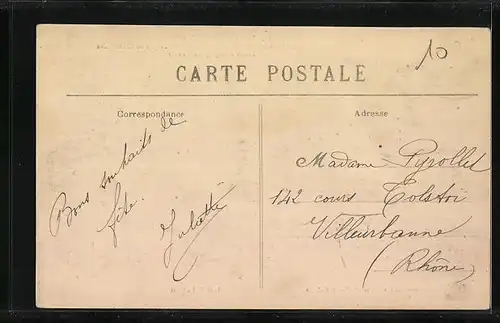 10
CARTE POSTALE
Correspondance
Bons souhaits de
fête.
Juliette
Adresse
Madame Pyrollet
142 cours Tolstoi
Villeurbanne
(Rhône)